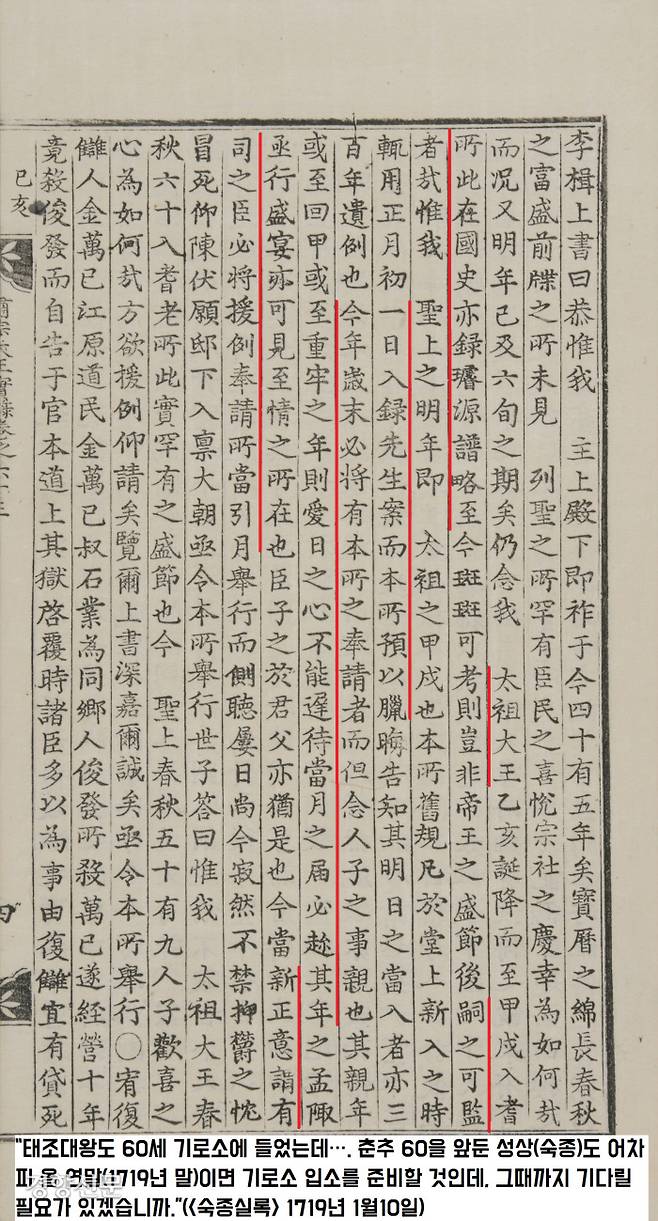 李楫上書曰恭惟我 主上殿下即祚于今四十有五年矣寶曆之綿長春秋
之富盛前牒之所未見 列聖之所罕有臣民之喜悅宗社之慶幸為如何哉
而況又明年已及六旬之期矣仍念我 太祖大王乙亥誕降而至甲戌入耆
所此在國史亦錄璿源譜略至今斑斑可考則豈非帝王之盛節後嗣之可監
者哉惟我 聖上之明年即 太祖之甲戌也本所舊規凡於堂上新入之時
輒用正月初一日入錄先生案而本所預以臘晦告知其明日之當入者亦三
百年遺例也今年歲末必將有本所之奉請者而但念人子之事親也其親年
或至回甲或至重牢之年則愛日之心不能遲待當月之屆必趁其年之孟陬
亟行盛宴亦可見至情之所在也臣子之於君父亦猶是也今當新正意謂有
司之臣必將援例奉請所當引月舉行而側聽屢日尚今寂然不禁抑鬱之忱
冒死仰陳伏願邸下入稟大朝亟令本所舉行世子答曰惟我 太祖大王春
秋六十入耆老所此實罕有之盛節也今 聖上春秋五十有九人子歡喜之
心為如何哉方欲援例仰請矣覽爾上書深嘉爾誠矣亟令本所舉行○宥復
讎人金萬已江原道民金萬已叔石業為同鄉人俊發所殺萬已遂經營十年
竟殺俊發而自告于官本道上其獄啓覆時諸臣多以為事由復讎宜有貸死
己亥
肅宗大王實錄卷之六十三
四
"태조대왕도 60세 기로소에 들었는데…. 춘추 60을 앞둔 성상(숙종)도 어차
피 올 연말(1719년 말)이면 기로소 입소를 준비할 것인데, 그때까지 기다릴
필요가 있겠습니까."(<숙종실록> 1719년 1월10일)
경향신문